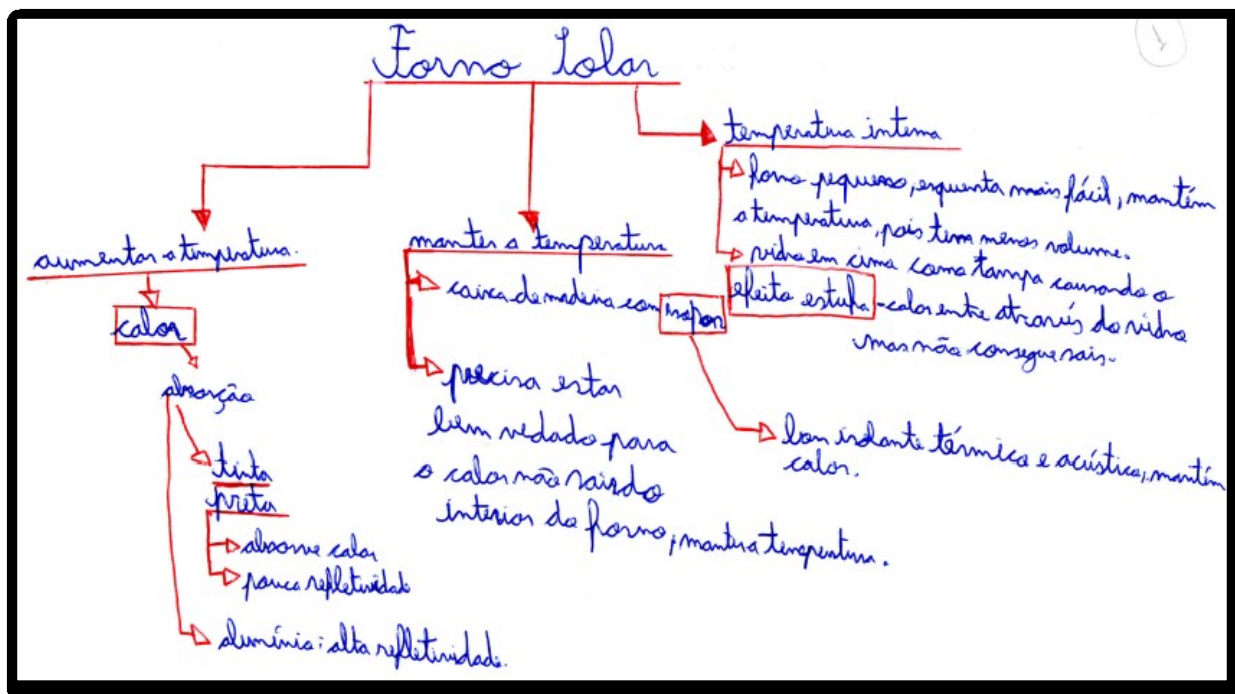 Forno Solar
1
aumentar a temperatura.
calor
absorção
tinta
preta
absorve calor
pouca refletividade
alumínio: alta refletividade.
manter a temperatura
caixa de madeira com isopor
precisa estar
bem vedado para
o calor não sair do
interior do forno, manter a temperatura.
temperatura interna
forno pequeno, esquenta mais fácil, mantém
a temperatura, pois tem menos volume.
vidro em cima como tampa causando o
efeito estufa - calor entre através do vidro
mas não consegue sair.
bom isolante térmico e acústico, mantém
calor.